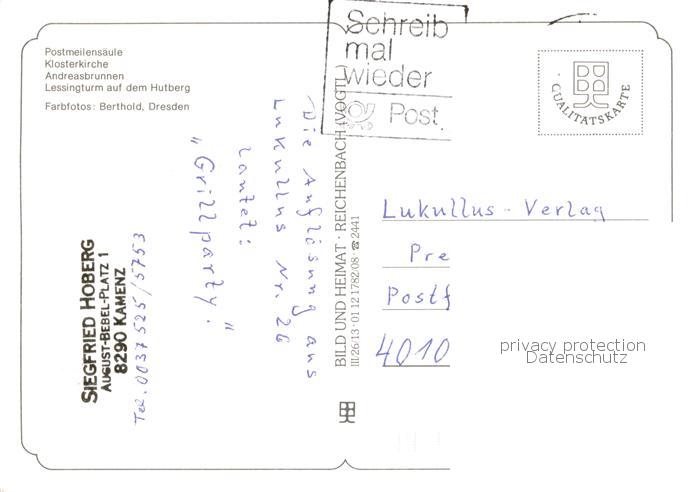 Postmeilensäule
Klosterkirche
Andreasbrunnen
Lessingturm auf dem Hutberg
Farbfotos: Berthold, Dresden
Schreib
mal
wieder
Post
QUALITÄTSKARTE
Die Auflösung aus
Lukullus Nr. 26
lautet:
"Grillparty."
SIEGFRIED HOBERG
AUGUST-BEBEL-PLATZ 1
8290 KAMENZ
Tel. 0037 525/5753
BILD UND HEIMAT · REICHENBACH (VOGTL)
III/26/13 · 01 12 1782/08 · ☎ 2441
Lukullus-Verlag
Pre
Postf
4010
privacy protection
Datenschutz